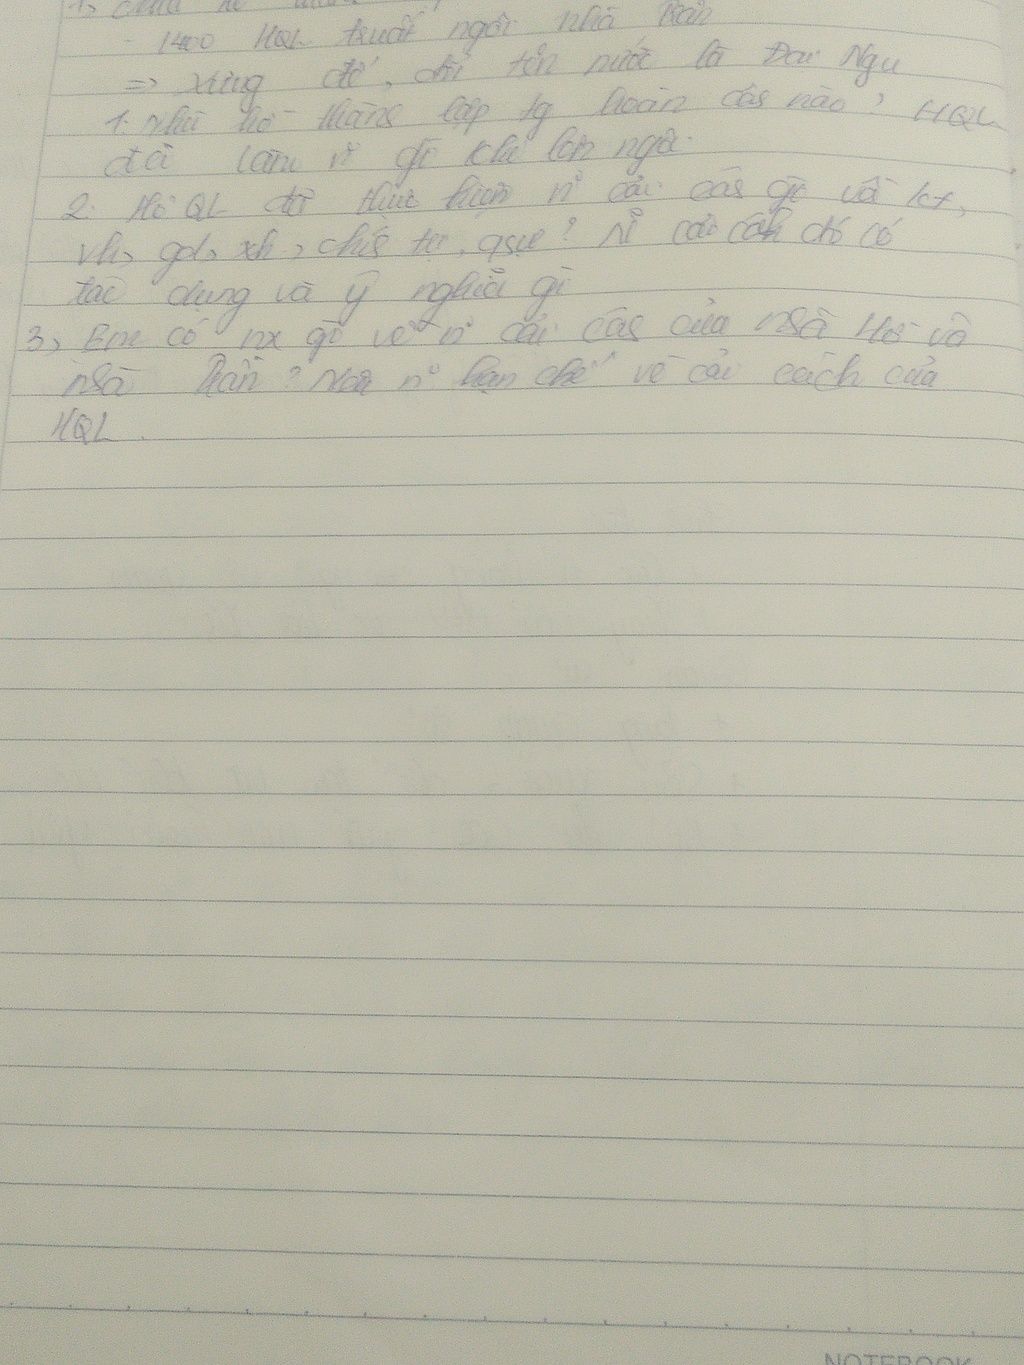 - 1400 HQL truất ngôi nhà Trần
=> xưng đế, đổi tên nước là Đại Ngu
1. Nhà hồ thành lập tg hoàn cảs nào? HQL
đã làm n~ gì khi lên ngôi.
2. Hồ QL đã thực hiện n~ cải cás gì về kt,
vh, gd, xh, chís trị, qsự? N~ cải cách đó có
tác dụng và ý nghĩa gì
3, Em có nx gì về n~ cải cás của nhà Hồ và
nhà Trần? Nêu n~ hạn chế về cải cách của
HQL.
NOTEBOOK